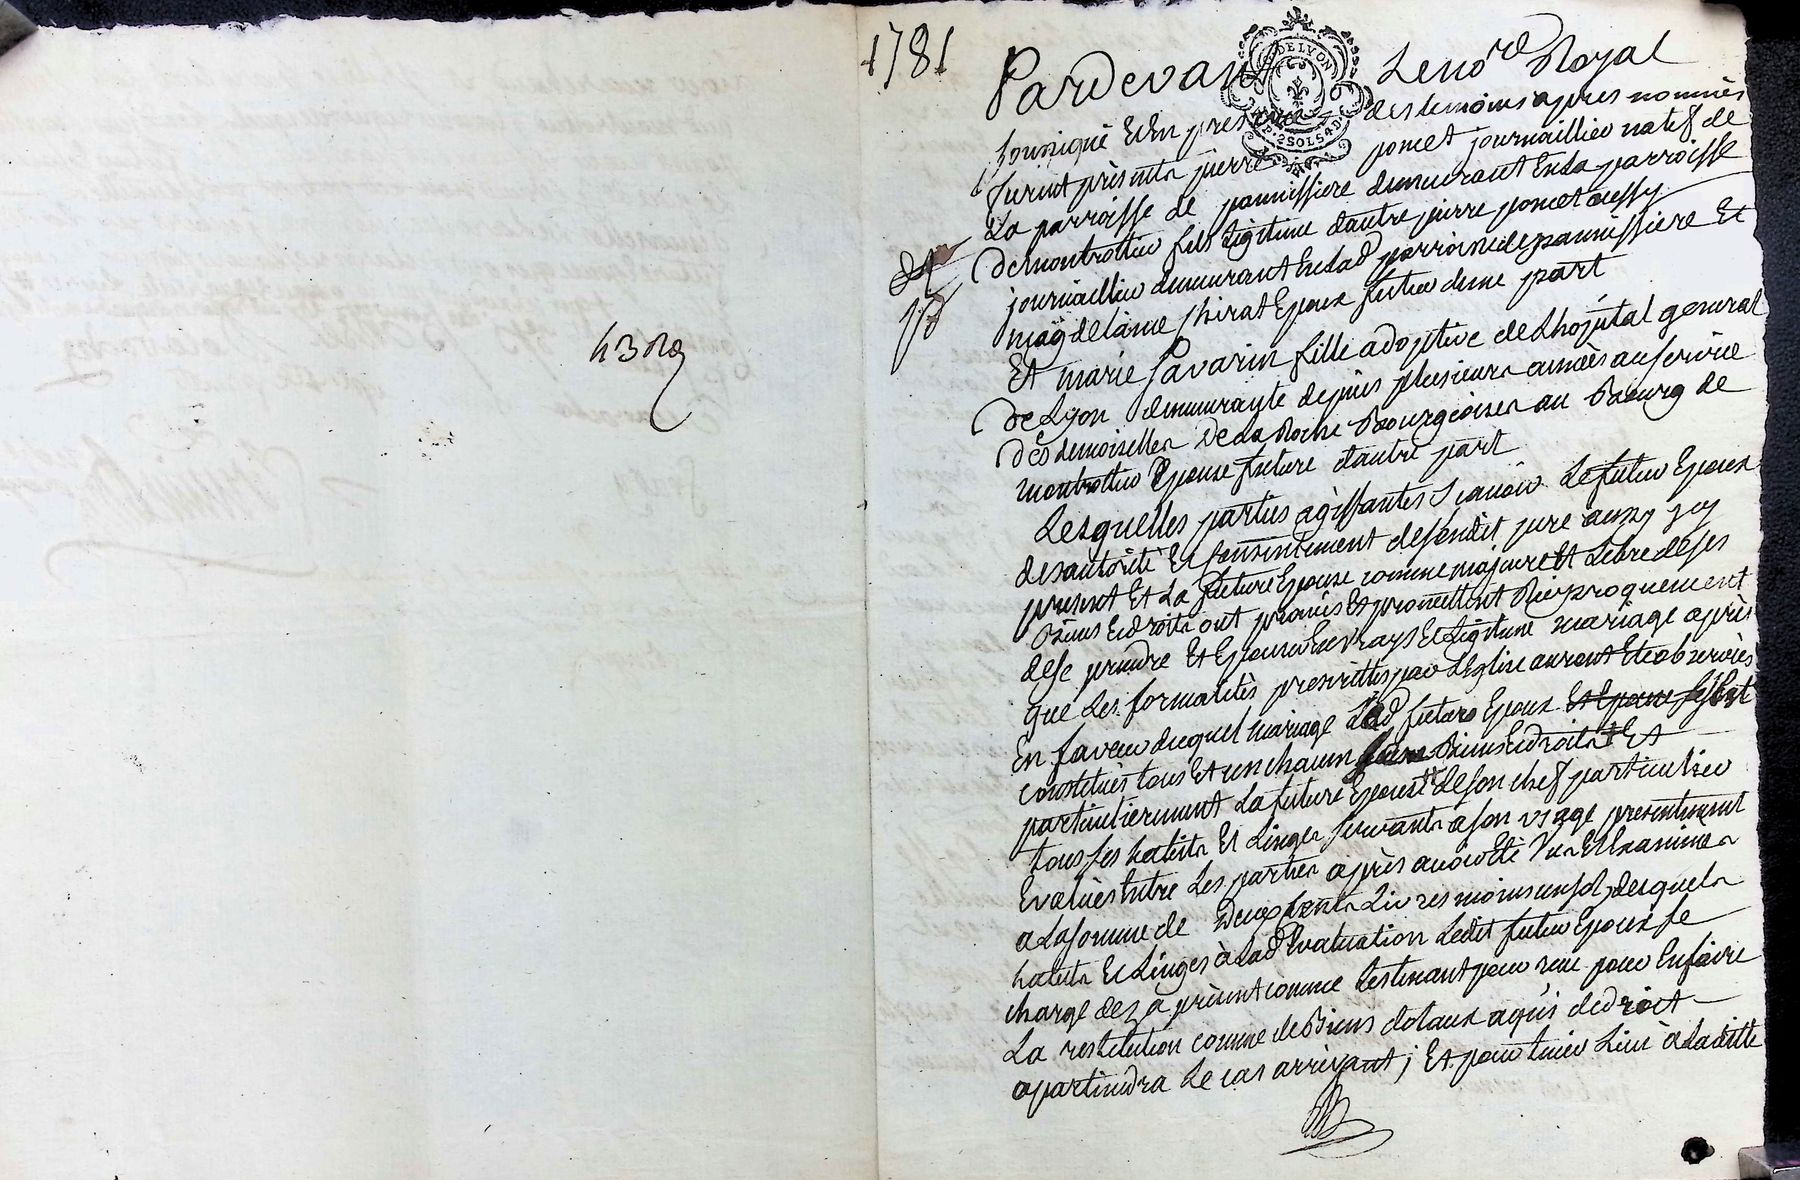 1781
DE LYON
2 SOLS 4 D.
Pardevant Le no.re Royal
soussigné Et En presence des temoins apres nommés
furent présents pierre poncet journaillier natif de
La parroisse de pannissiere demeurant En La parroisse
de montrottier fils Légitime d'autre pierre poncet aussy
journaillier demeurant En Lad parroisse de pannissiere Et
magdelaine Chirat Epoux futur d'une part
Et marie Savarin fille adoptive de L'hopital general
de Lyon demeurante depuis plusieurs années au service
des demoiselles De La Roche Bourgeoises au Bourg de
montrottier Epouse future d'autre part
Lesquelles parties agissantes Scavoir Le futur Epoux
de L'autorité Et Consentement de sondit pere aussy icy
present Et La future Epouse comme majeure Et Libre de ses
Biens Et droits ont promis Et promettent Réciproquement
de se prendre Et Epouser En vrays Et Légitime mariage après
que Les formalités prescrittes par L'Eglise auront Eté observées
En faveur duquel mariage Led futurs Epoux Et Epouse se sont
constitués tous Et un chacun Leurs Biens Et droits Et
particulierement La future Epouse de son chef particulier
tous ses habits Et Linges servants a son usage presentement
Evalués Entre Les parties après avoir Eté Vus Et Examinés
a La somme de Deux Cents Livres moins un sol, desquels
habits Et Linges à Lad Evaluation Ledit futur Epoux se
charge dez a présent comme Les tenant pour reçu pour En faire
La restitution comme de Biens dotaux a qui de droict
apartiendra Le cas arrivant ; Et pour tenir Lieu à La ditte